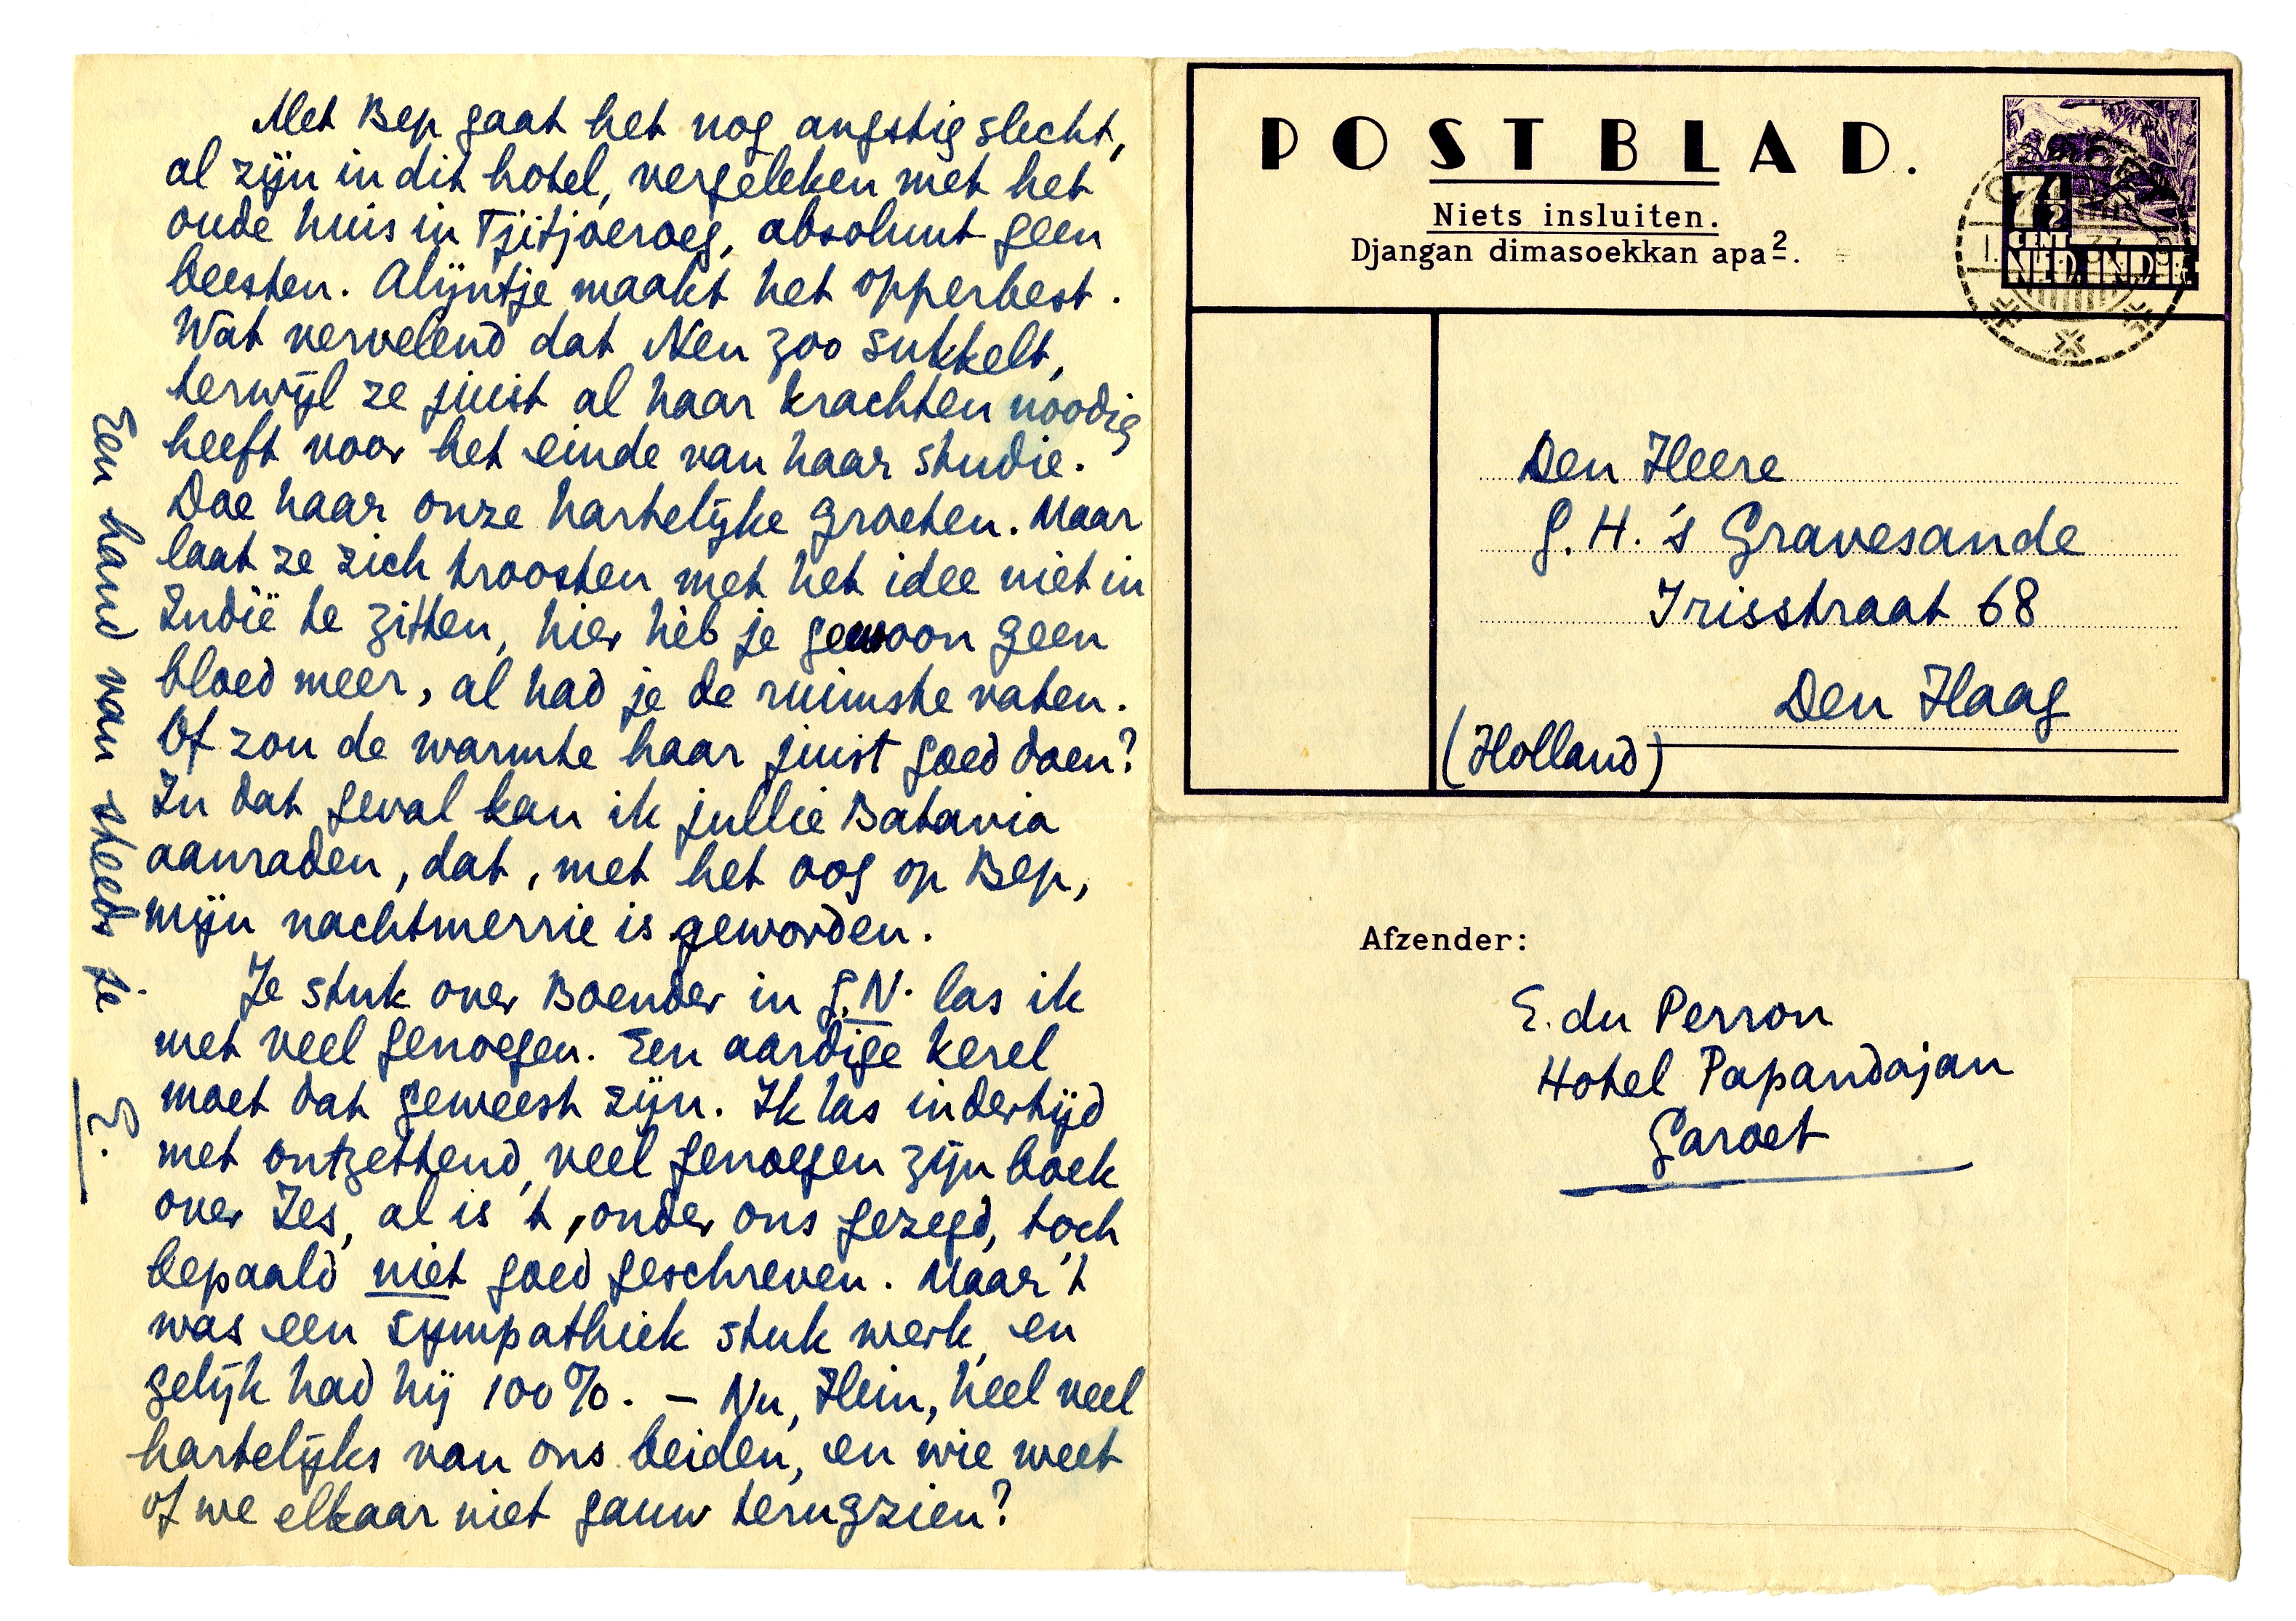 Met Bep gaat het nog angstig slecht,
al zijn in dit hotel, vergeleken met het
oude huis in Tjitjoeroeg, absoluut geen
beesten. Alijntje maakt het opperbest.
Wat vervelend dat Nen zoo sukkelt,
terwijl ze juist al haar krachten noodig
heeft voor het einde van haar studie.
Doe haar onze hartelijke groeten. Maar
laat ze zich troosten met het idee niet in
Indië te zitten, hier hèb je gewoon geen
bloed meer, al had je de ruimste vaten.
Of zou de warmte haar juist goed doen?
In dat geval kan ik jullie Batavia
aanraden, dat, met het oog op Bep,
mijn nachtmerrie is geworden.
Je stuk over Boender in G.N. las ik
met veel genoegen. Een aardige kerel
moet dat geweest zijn. Ik las indertijd
met ontzettend veel genoegen zijn boek
over Jes, al is 't, onder ons gezegd, toch
bepaald niet goed geschreven. Maar 't
was een sympathiek stuk werk, en
gelijk had hij 100%. — Nu, Hein, heel veel
hartelijks van ons beiden, en wie weet
of we elkaar niet gauw terugzien?
Een hand van steeds je
E.
POSTBLAD.
Niets insluiten.
Djangan dimasoekkan apa2.
7½
CENT
NED. INDIË
Den Heere
G. H. 's Gravesande
Irisstraat 68
Den Haag
(Holland)
Afzender:
E. du Perron
Hotel Papandajan
Garoet